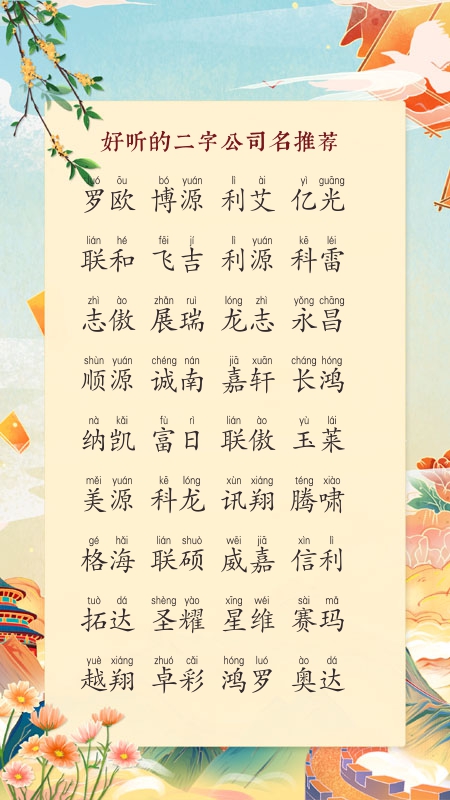 好听的二字公司名推荐
luó ōu bó yuán lì ài yì guāng
罗欧 博源 利艾 亿光
lián hé fēi jí lì yuán kē léi
联和 飞吉 利源 科雷
zhì ào zhǎn ruì lóng zhì yǒng chāng
志傲 展瑞 龙志 永昌
shùn yuán chéng nán jiā xuān cháng hóng
顺源 诚南 嘉轩 长鸿
nà kǎi fù rì lián ào yù lái
纳凯 富日 联傲 玉莱
měi yuán kē lóng xùn xiáng téng xiào
美源 科龙 讯翔 腾啸
gé hǎi lián shuò wēi jiā xìn lì
格海 联硕 威嘉 信利
tuò dá shèng yào xīng wéi sài mǎ
拓达 圣耀 星维 赛玛
yuè xiáng zhuó cǎi hóng luó ào dá
越翔 卓彩 鸿罗 奥达